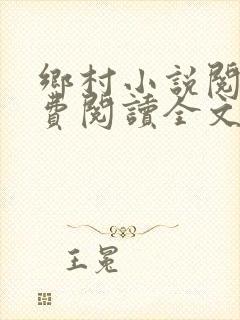 鄉村小說閱
費閱讀全文
王冕